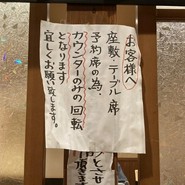 お客様へ
座敷・テーブル席
予約席の為、
カウンターのみの回転
となります
宜しくお願い致します。